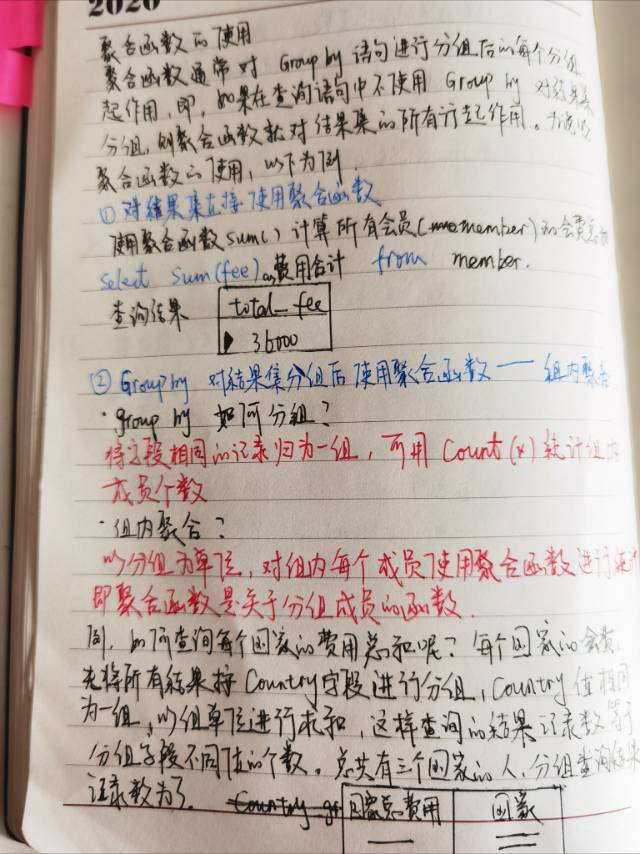 2020
聚合函数的使用
聚合函数通常对 Group by 语句进行分组后的每个分组
起作用,即,如果在查询语句中不使用 Group by 对结果集
分组,则聚合函数就对结果集的所有行起作用。
聚合函数的使用,以下为例
① 对结果集直接使用聚合函数
使用聚合函数sum()计算所有会员(member)的会费总和
select sum(fee) as 费用合计 from member.
查询结果
total_fee
36000
② Group by 对结果集分组后使用聚合函数 —— 组内聚合
·group by 如何分组?
将字段相同的记录归为一组,可用 Count(*)统计组内
成员个数
·组内聚合?
以分组为单位,对组内每个成员使用聚合函数进行统计
即聚合函数是关于分组成员的函数.
例.如何查询每个国家的费用总和呢?每个国家的会费.
先将所有结果按 Country字段进行分组,Country值相同
为一组,以组单位进行求和,这样查询的结果记录数等于
分组字段不同值的个数。总共有三个国家的人,分组查询结果
记录数为了.
国家总费用 国家